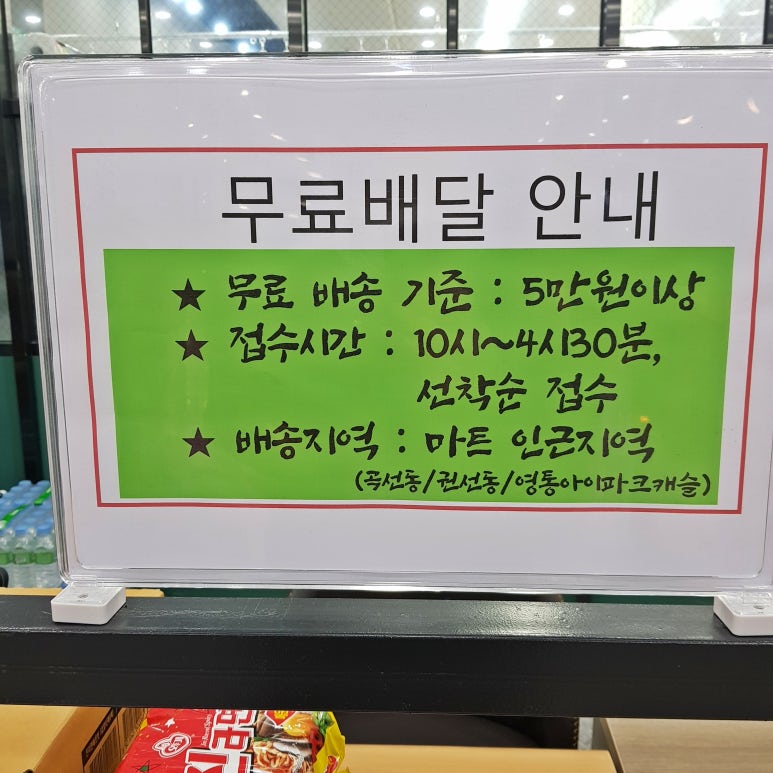 무료배달 안내
★ 무료 배송 기준 : 5만원이상
★ 접수시간 : 10시~4시30분,
선착순 접수
★ 배송지역 : 마트 인근지역
(곡선동/권선동/영통아이파크캐슬)